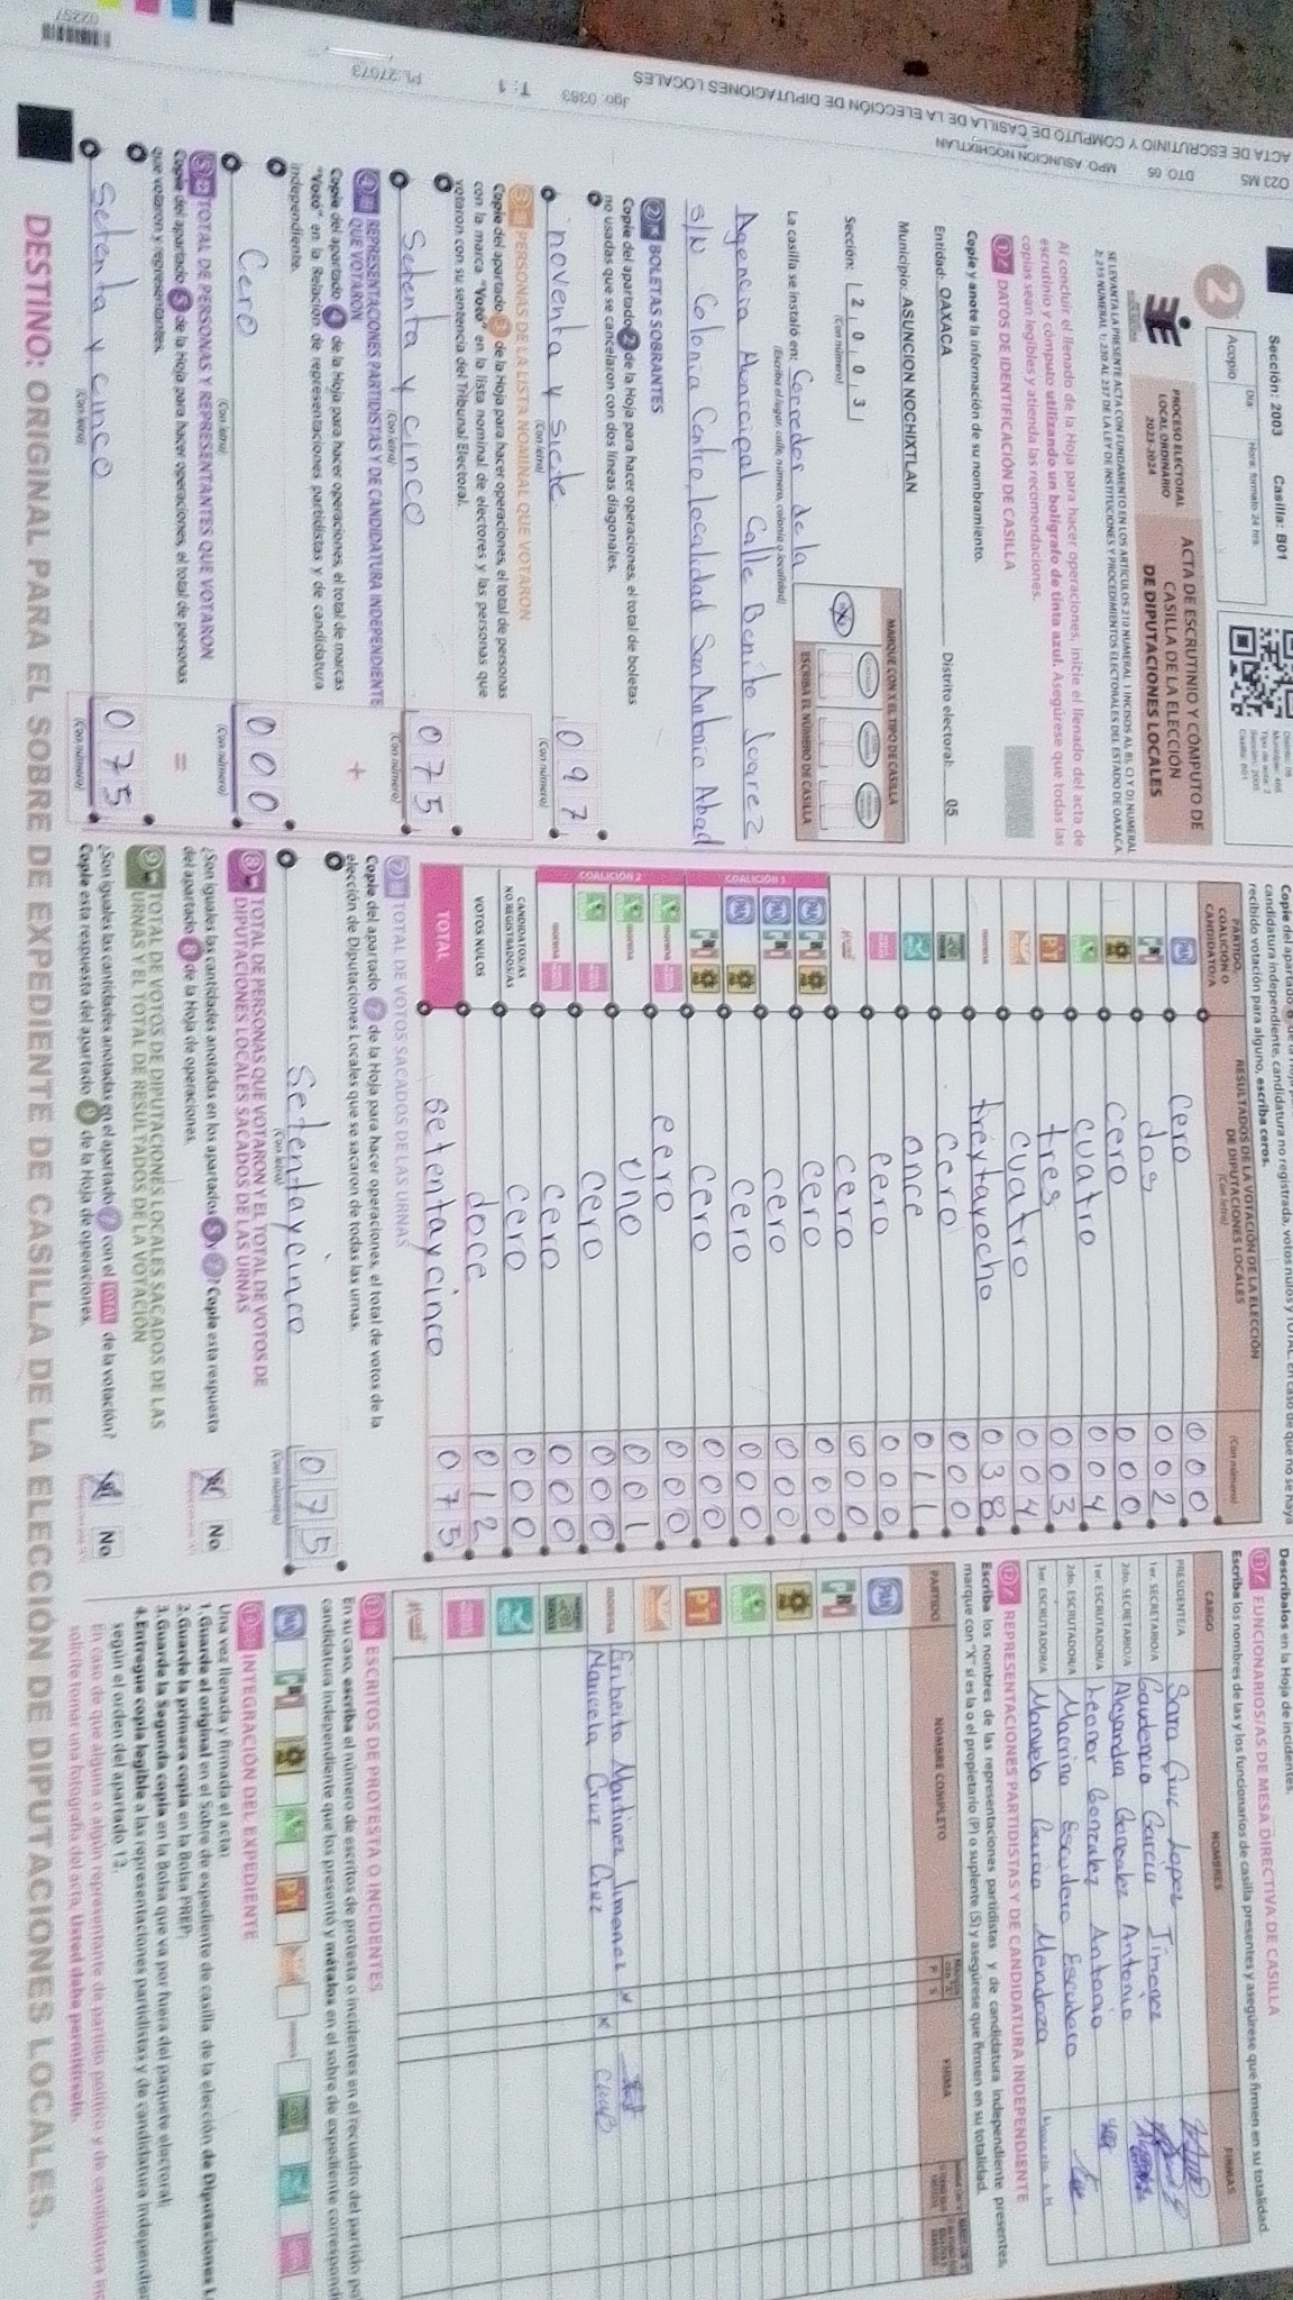 023 MS DTO 05 MPO. ASUNCION NOCHIXTLAN
ACTA DE ESCRUTINIO Y CÓMPUTO DE CASILLA DE LA ELECCIÓN DE DIPUTACIONES LOCALES
Jgo. 0383 T: 1 PL:27073
02257
Sección: 2003 Casilla: B01
Día Hora: formato 24 hrs.
Acopio
2
PROCESO ELECTORAL
LOCAL ORDINARIO
2023-2024
ACTA DE ESCRUTINIO Y CÓMPUTO DE
CASILLA DE LA ELECCIÓN
DE DIPUTACIONES LOCALES
Al concluir el llenado de la Hoja para hacer operaciones, inicie el llenado del acta de
escrutinio y cómputo utilizando un bolígrafo de tinta azul. Asegúrese que todas las
copias sean legibles y atienda las recomendaciones.
1 DATOS DE IDENTIFICACIÓN DE CASILLA
Copie y anote la información de su nombramiento.
Entidad: OAXACA Distrito electoral: 05
Municipio: ASUNCION NOCHIXTLAN
Sección: 2 0 0 3
(Con número)
MARQUE CON X EL TIPO DE CASILLA
ESCRIBA EL NÚMERO DE CASILLA
La casilla se instaló en: Corredor de la
(Escriba el lugar, calle, número, colonia o localidad)
Agencia Municipal Calle Benito Juarez
S/N Colonia Centro, localidad San Antonio Abad
2 BOLETAS SOBRANTES
Copie del apartado 2 de la Hoja para hacer operaciones, el total de boletas
no usadas que se cancelaron con dos líneas diagonales.
noventa y siete 0 9 7
(Con letra) (Con número)
3 PERSONAS DE LA LISTA NOMINAL QUE VOTARON
Copie del apartado 3 de la Hoja para hacer operaciones, el total de personas
con la marca "Votó" en la lista nominal de electores y las personas que
votaron con su sentencia del Tribunal Electoral.
Setenta y cinco 0 7 5
(Con letra) (Con número)
4 REPRESENTACIONES PARTIDISTAS Y DE CANDIDATURA INDEPENDIENTE
QUE VOTARON
Copie del apartado 4 de la Hoja para hacer operaciones, el total de marcas
"Votó" en la Relación de representaciones partidistas y de candidatura
independiente.
+
Cero 0 0 0
(Con letra) (Con número)
5 TOTAL DE PERSONAS Y REPRESENTANTES QUE VOTARON
Copie del apartado 5 de la Hoja para hacer operaciones, el total de personas
que votaron y representantes.
=
Setenta y cinco 0 7 5
(Con letra) (Con número)
candidatura independiente, candidatura no registrada, votos nulos y TOTAL. En caso de que no se haya
recibido votación para alguno, escriba ceros.
PARTIDO,
COALICIÓN O
CANDIDATO/A
RESULTADOS DE LA VOTACIÓN DE LA ELECCIÓN
DE DIPUTACIONES LOCALES
(Con letra) (Con número)
PAN cero 0 0 0
PRI dos 0 0 2
cero 0 0 0
cuatro 0 0 4
PT tres 0 0 3
cuatro 0 0 4
morena treytayocho 0 3 8
cero 0 0 0
once 0 1 1
cero 0 0 0
cero 0 0 0
COALICIÓN 1
PAN PRI cero 0 0 0
PAN PRI cero 0 0 0
PAN cero 0 0 0
PRI cero 0 0 0
COALICIÓN 2
morena cero 0 0 0
morena uno 0 0 1
cero 0 0 0
morena cero 0 0 0
CANDIDATOS/AS
NO REGISTRADOS/AS cero 0 0 0
VOTOS NULOS doce 0 1 2
TOTAL setentaycinco 0 7 5
7 TOTAL DE VOTOS SACADOS DE LAS URNAS
Copie del apartado 7 de la Hoja para hacer operaciones, el total de votos de la
elección de Diputaciones Locales que se sacaron de todas las urnas.
Setentaycinco 0 7 5
(Con letra) (Con número)
8 TOTAL DE PERSONAS QUE VOTARON Y EL TOTAL DE VOTOS DE
DIPUTACIONES LOCALES SACADOS DE LAS URNAS
¿Son iguales las cantidades anotadas en los apartados 5 y 7? Copie esta respuesta
del apartado 8 de la Hoja de operaciones.
No
9 TOTAL DE VOTOS DE DIPUTACIONES LOCALES SACADOS DE LAS
URNAS Y EL TOTAL DE RESULTADOS DE LA VOTACIÓN
¿Son iguales las cantidades anotadas en el apartado 7 con el TOTAL de la votación?
Copie esta respuesta del apartado 9 de la Hoja de operaciones.
No
Descríbalos en la Hoja de incidentes.
11 FUNCIONARIOS/AS DE MESA DIRECTIVA DE CASILLA
Escriba los nombres de las y los funcionarios de casilla presentes y asegúrese que firmen en su totalidad.
CARGO NOMBRES FIRMAS
PRESIDENTE/A Sara Cruz Lopez
1er. SECRETARIO/A Gaudencio Garcia Jimenez
2do. SECRETARIO/A Alejandra Gonzalez Antonio
1er. ESCRUTADOR/A Leonor Gonzalez Antonio
2do. ESCRUTADOR/A Macrina Escudero Escudero
3er. ESCRUTADOR/A Manuela Garcia Mendoza
12 REPRESENTACIONES PARTIDISTAS Y DE CANDIDATURA INDEPENDIENTE
Escriba los nombres de las representaciones partidistas y de candidatura independiente presentes,
marque con "X" si es la o el propietario (P) o suplente (S) y asegúrese que firmen en su totalidad.
PARTIDO NOMBRE COMPLETO P S FIRMA
PAN
PRI
PT
morena Eriberto Martinez Jimenez x
Maricela Cruz Cruz x
13 ESCRITOS DE PROTESTA O INCIDENTES
En su caso, escriba el número de escritos de protesta o incidentes en el recuadro del partido po
candidatura independiente que los presentó y métalos en el sobre de expediente correspondi
PAN PRI PT
INTEGRACIÓN DEL EXPEDIENTE
Una vez llenada y firmada el acta:
1. Guarde el original en el Sobre de expediente de casilla de la elección de Diputaciones L
2. Guarde la primera copia en la Bolsa PREP;
3. Guarde la Segunda copia en la Bolsa que va por fuera del paquete electoral;
4. Entregue copia legible a las representaciones partidistas y de candidatura independie
según el orden del apartado 12.
En caso de que alguna o algún representante de partido político y de candidatura in
solicite tomar una fotografía del acta, Usted debe permitírselo.
DESTINO: ORIGINAL PARA EL SOBRE DE EXPEDIENTE DE CASILLA DE LA ELECCIÓN DE DIPUTACIONES LOCALES.